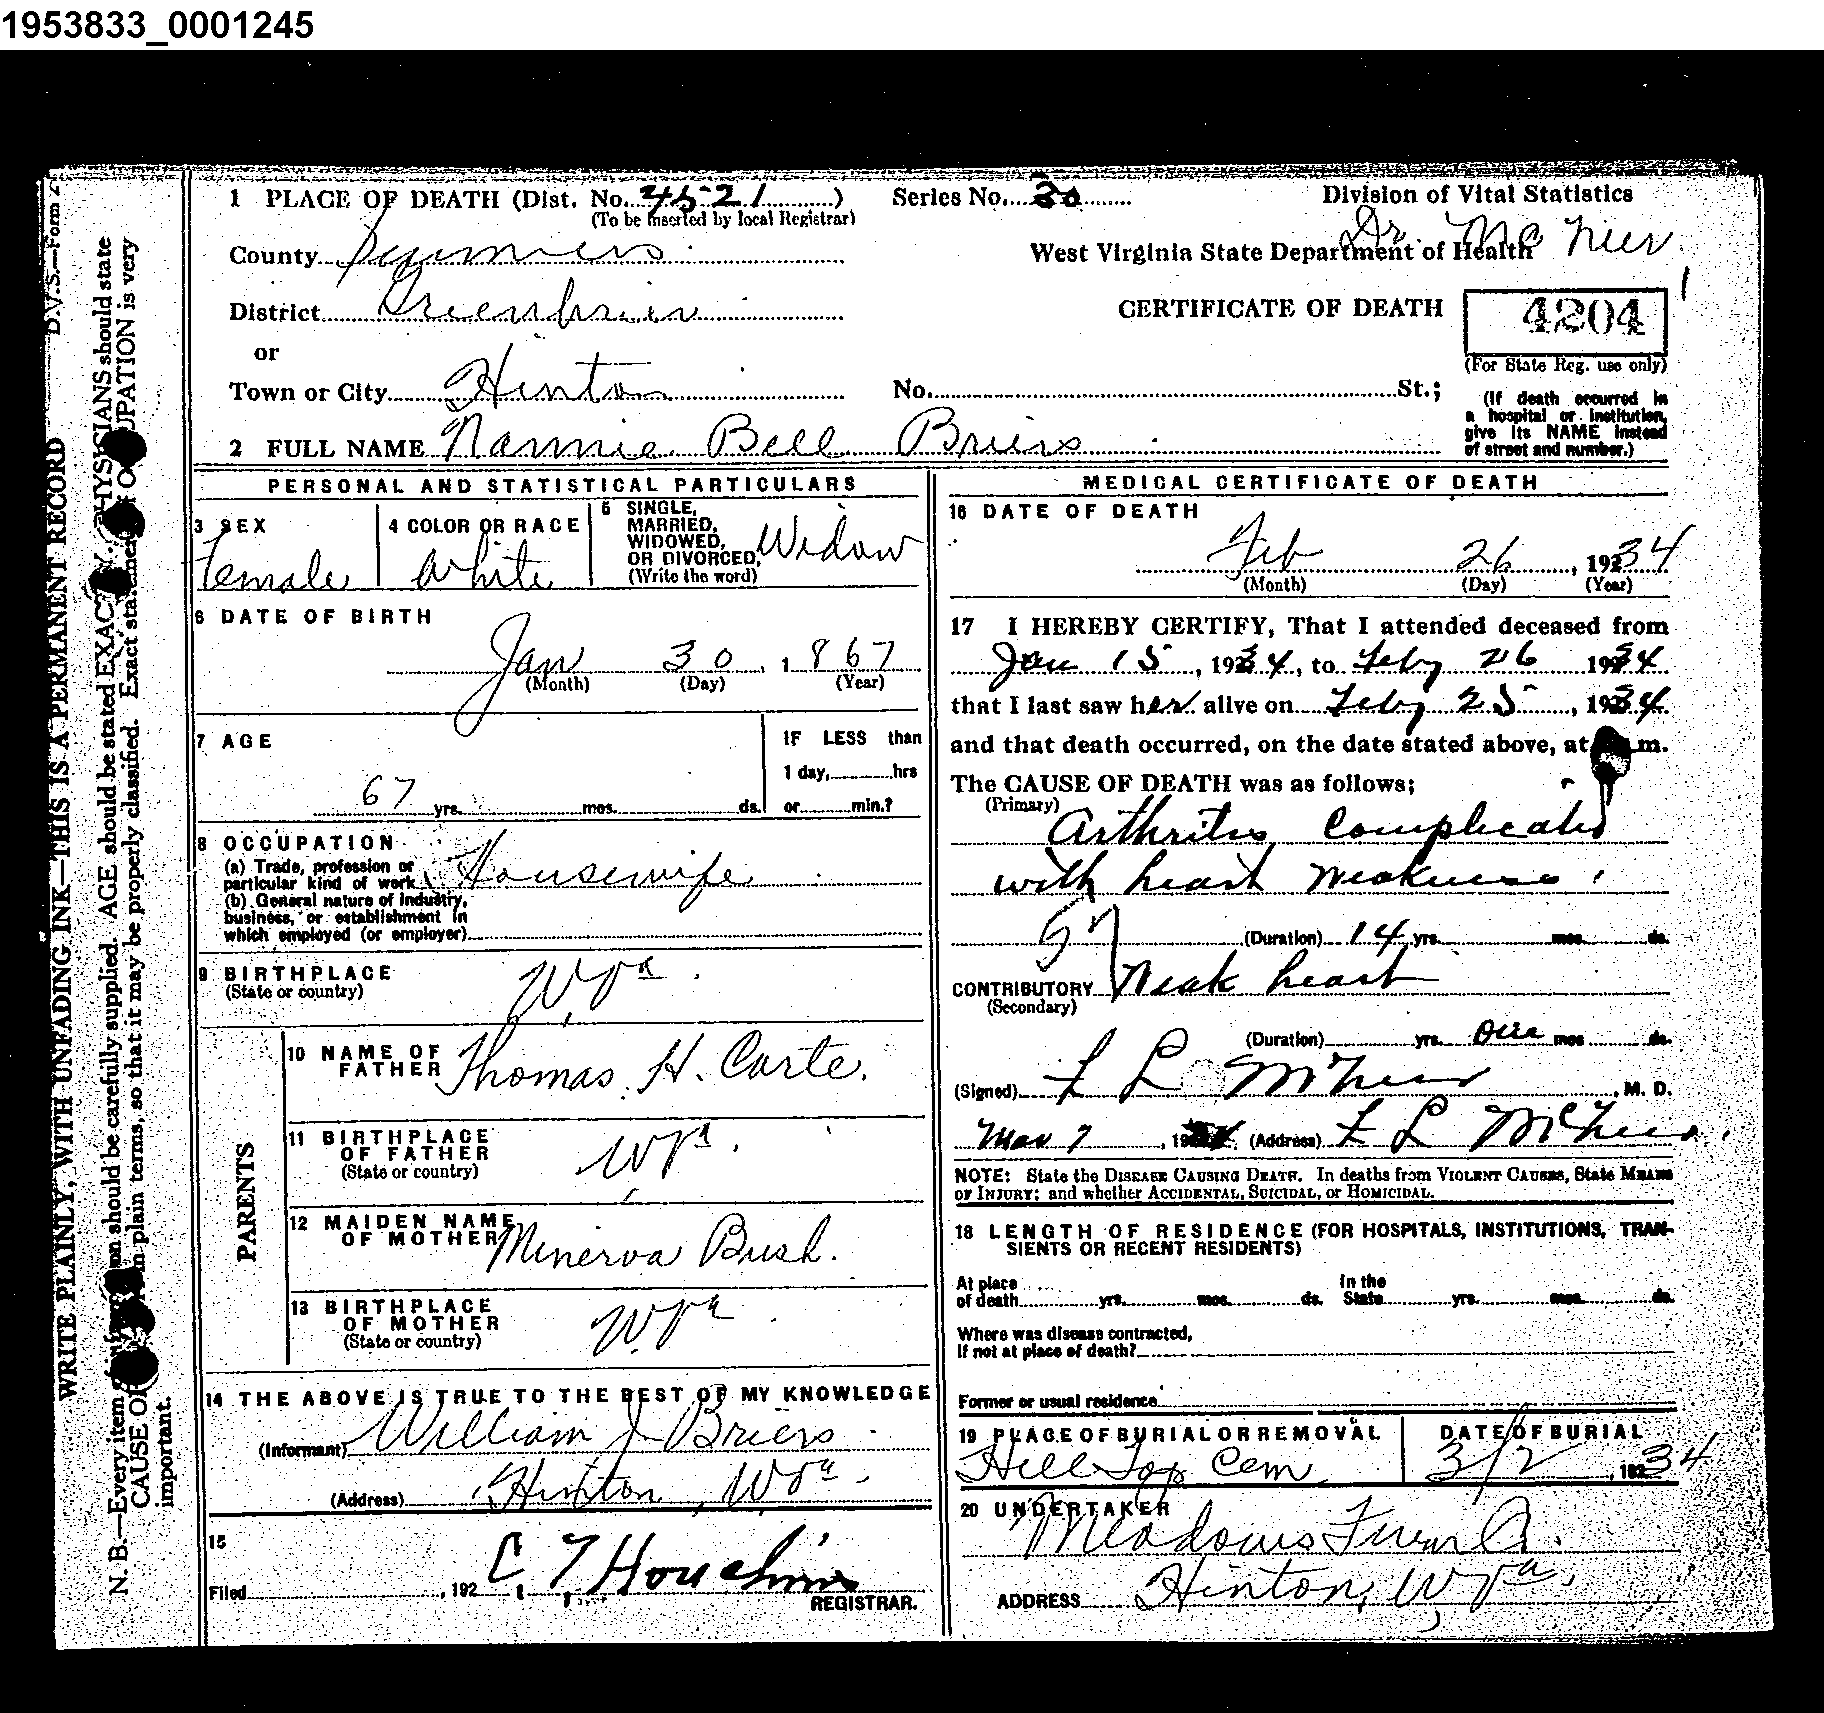 1953833_0001245
D.V.S.—Form
WRITE PLAINLY, WITH UNFADING INK—THIS IS A PERMANENT RECORD
N. B.—Every item of information should be carefully supplied. AGE should be stated EXACTLY. PHYSICIANS should state
CAUSE OF in plain terms, so that it may be properly classified. Exact statement of OCCUPATION is very
important.
1 PLACE OF DEATH (Dist. No. 4521) Series No. 30
(To be inserted by local Registrar)
Division of Vital Statistics
Dr. McNeer
West Virginia State Department of Health
County Summers
District Greenbrier
CERTIFICATE OF DEATH 4204
(For State Reg. use only)
or
Town or City Hinton No. St.;
(If death occurred in
a hospital or institution,
give its NAME instead
of street and number.)
2 FULL NAME Nannie Bell Briers
PERSONAL AND STATISTICAL PARTICULARS
3 SEX
Female
4 COLOR OR RACE
White
5 SINGLE,
MARRIED,
WIDOWED,
OR DIVORCED, Widow
(Write the word)
6 DATE OF BIRTH
Jan 30, 1867
(Month) (Day) (Year)
7 AGE
67 yrs. mos. ds.
IF LESS than
1 day, hrs
or min.?
8 OCCUPATION
(a) Trade, profession or
particular kind of work Housewife
(b) General nature of industry,
business, or establishment in
which employed (or employer)
9 BIRTHPLACE
(State or country) W. Va.
PARENTS
10 NAME OF
FATHER Thomas H. Carte.
11 BIRTHPLACE
OF FATHER
(State or country) W Va.
12 MAIDEN NAME
OF MOTHER Minerva Bush.
13 BIRTHPLACE
OF MOTHER
(State or country) W. Va
14 THE ABOVE IS TRUE TO THE BEST OF MY KNOWLEDGE
(Informant) William J Briers
(Address) Hinton, W Va.
15
Filed , 192 C T Houchins
REGISTRAR.
MEDICAL CERTIFICATE OF DEATH
16 DATE OF DEATH
Feb 26, 1934
(Month) (Day) (Year)
17 I HEREBY CERTIFY, That I attended deceased from
Jan 15, 1934, to Feby 26 1934
that I last saw her alive on Feby 25, 1934
and that death occurred, on the date stated above, at m.
The CAUSE OF DEATH was as follows;
(Primary)
Arthritis complicated
with heart weakness.
57 (Duration) 14 yrs. mos. ds.
CONTRIBUTORY Weak heart
(Secondary)
(Duration) yrs. One mos ds.
(Signed) F L McNeer, M. D.
Mar 7, 1934 (Address) F L McNeer
NOTE: State the DISEASE CAUSING DEATH. In deaths from VIOLENT CAUSES, State MEANS
OF INJURY; and whether ACCIDENTAL, SUICIDAL, or HOMICIDAL.
18 LENGTH OF RESIDENCE (FOR HOSPITALS, INSTITUTIONS, TRAN-
SIENTS OR RECENT RESIDENTS)
At place
of death yrs. mos. ds. In the
State yrs. mos. ds.
Where was disease contracted,
If not at place of death?
Former or usual residence
19 PLACE OF BURIAL OR REMOVAL
Hill Top Cem
DATE OF BURIAL
3/2, 1934
20 UNDERTAKER
Meadows Furn Co.
ADDRESS Hinton, W Va.